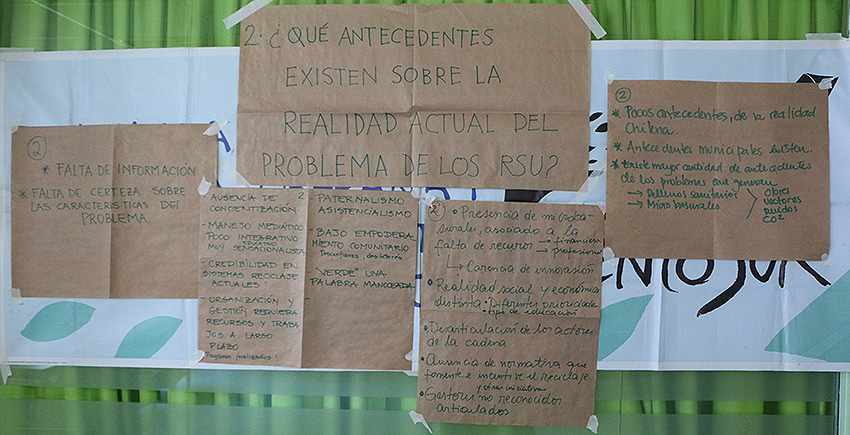 2. ¿QUÉ ANTECEDENTES
EXISTEN SOBRE LA
REALIDAD ACTUAL DEL
PROBLEMA DE LOS RSU?
2
* FALTA DE INFORMACIÓN
* FALTA DE CERTEZA SOBRE
LAS CARACTERISTICAS DEL
PROBLEMA
2
AUSENCIA DE
CONCIENTIZACIÓN
- MANEJO MEDIÁTICO
POCO INTEGRATIVO
EDUCATIVO
MUY SENSACIONALISTA
- CREDIBILIDAD EN
SISTEMAS RECICLAJE
ACTUALES
- ORGANIZACIÓN Y
GESTIÓN REQUIERA
RECURSOS Y TRABA
JOS A LARGO
PLAZO
- PATERNALISMO
ASISTENCIALISMO
- BAJO EMPODERA
MIENTO COMUNITARIO
Desconfianza, desinterés
- "VERDE" UNA
PALABRA MANOSEADA
2
• Presencia de microba-
surales, asociado a la
falta de recursos → financieros
→ profesional
↳ Carencia de innovasión
• Realidad social y económica
distinta • Diferentes prioridades
• tipo de educación
• Desarticulación de los actores
de la cadena
• Ausencia de normativa que
fomente e incentive el reciclaje
y otras iniciativas
• Gestores no reconocidos
articulados
2
* Pocos antecedentes, de la realidad
Chilena.
* Antecedentes municipales existen.
* Existe mayor cantidad de antecedentes
de los problemas que generan
→ Rellenos sanitarios
→ Micro basurales
olores
vectores
ruidos
CO2
ENTO SUR